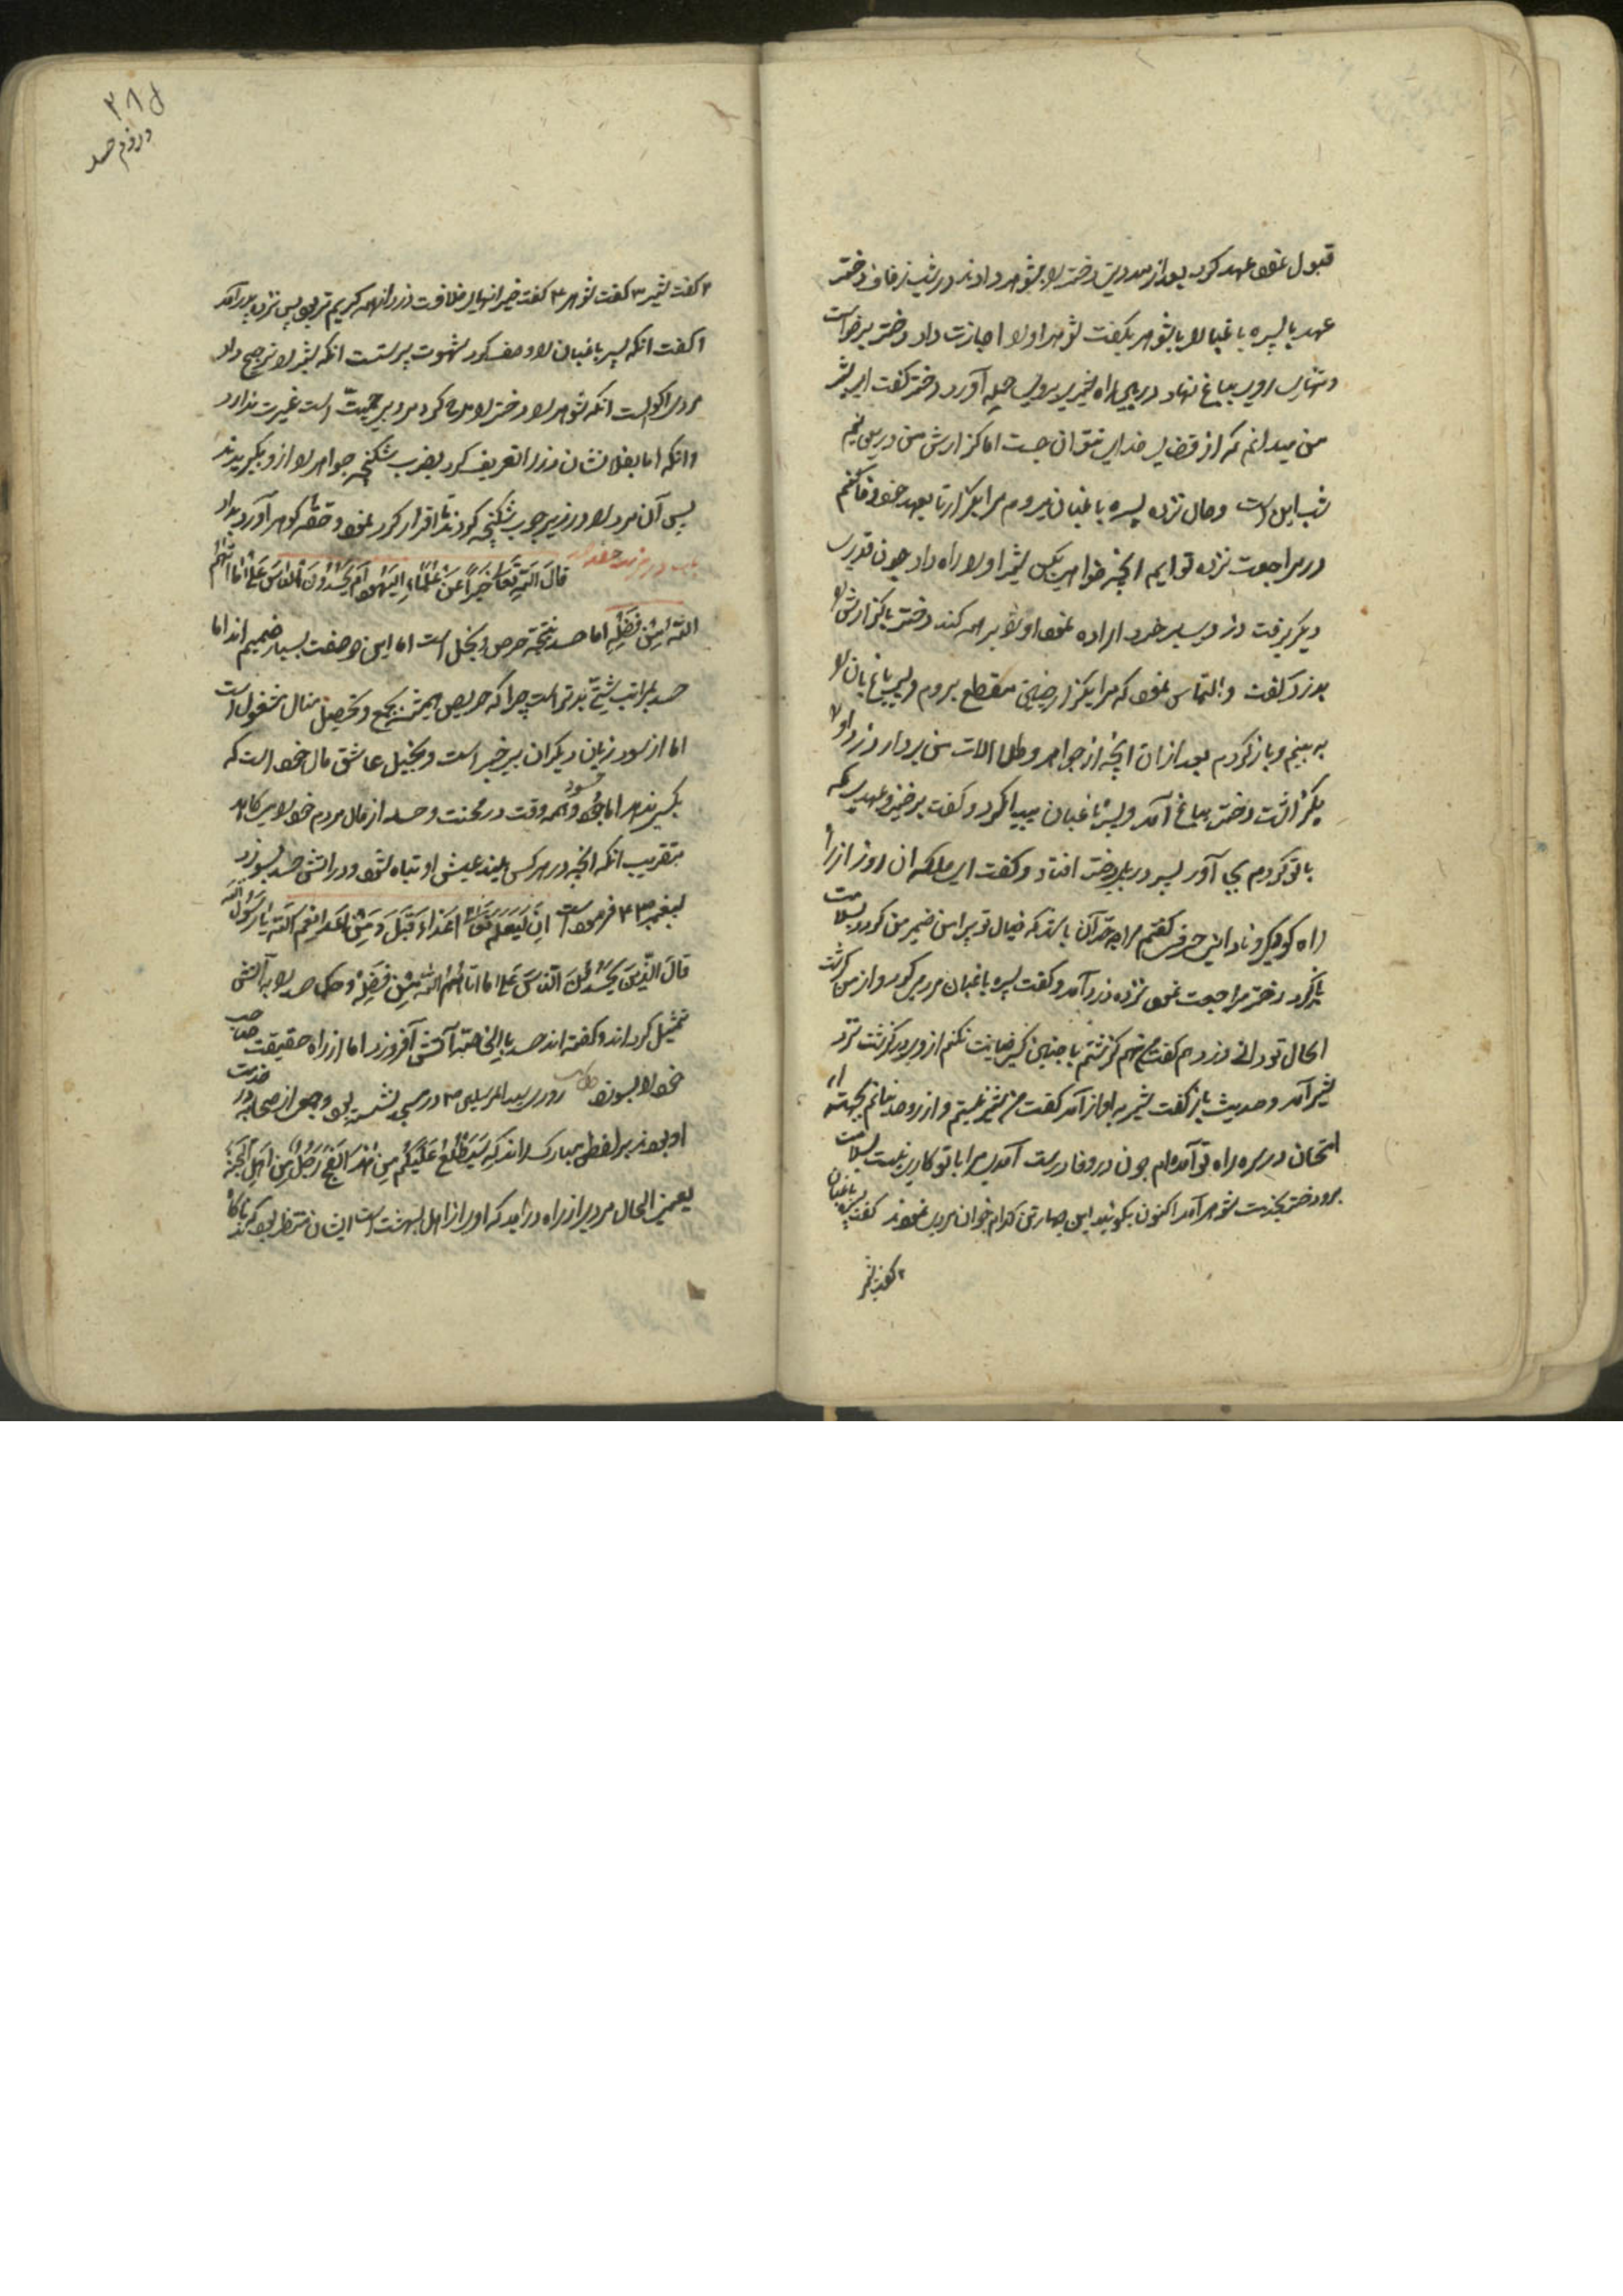 قبول نموده عهد کرد بعد از مدتی دختر را بشوهر دادند در شب زفاف دختر
عهد با پسره باغبان را با شوهر بگفت شوهر او را اجازت داد دختر برخاست
و تنها روی بباغ نهاد در بین راه شیری بروی حمله آورد دختر گفت ای شیر
من میدانم که از قضای خدای نتوان جست اما گذارش من
شب این است و حال نزد پسره باغبان میروم مرا بگذار تا بعهد خود وفا کنم
در مراجعت نزد تو آیم آنچه خواهی بکن شیر او را راه داد چون قدری
دیگر برفت دزدی بسر خورد اراده نمود او را برهنه کند دختر باز گذارش را
بدزد گفت و التماس نمود که مرا بگذار بروم و پسر باغبان را
به بینم و باز گردم بعد از آن آنچه از جواهر و طلا آلات من بردار دزد او را
بگذاشت دختر بباغ آمد و پسر باغبان پیدا کرد و گفت برخیز و عهدی که
با تو کردم بجای آور پسر در پای دختر افتاد و گفت ای ملکه آن روز از
راه کودکی و نادانی حرفی گفتم مرا چه حد آن باشد که خیال تو پیرامن ضمیر من گردد بسلامت
باز گرد دختر مراجعت نموده نزد دزد آمد و گفت پسره باغبان مردی کرد و از من گذشت
الحال تو دانی دزد هم گفت من هم گذشتم با چنین کسی خیانت نکنم از وی درگذشت نزد
شیر آمد و حدیث باز گفت شیر به آواز آمد گفت من شیر نیستم و از بجهت
امتحان در سر راه تو آمده‌ام چون در وفا درست آمدی مرا با تو کاری نیست بسلامت
برو دختر بخدمت شوهر آمد اکنون بگوئید این چهار تن کدام جوان مردی نمودند ا گفت پسره باغبان
۲ گفت شیر
ل ۳۸
در ذم حسد
۲ گفت شیر ۳ گفت شوهر ۴ گفت دزد از همه کریم تر بود پس نزد پدر آمد
و گفت آنکه پسر باغبان را وصف کرد شهوت پرستست آنکه شیر را ترجیح داد
مردی اکول است آنکه شوهر را دختر را مدح کرد مردی بی حمیت است غیرت ندارد
و آنکه اما بفلان نشان دزد را تعریف کرد بضرب شکنجه جواهر را از او بگیرید
پس آن مرد را در زیر چوب شکنجه کردند تا اقرار کرد نمود و حقه گوهر آورد بداد
باب در مذمت حسد قال الله تعالی خبراً عن علماء الیهود ام یحسدون الناس علی ما آتیهم
الله من فضله اما حسد نتیجه حرص و بخل است اما این دو صفت بسیار ضمیم‌اند اما
حسد بمراتب شتی بدتر است چرا که حریص همیشه بجمع و تحصیل منال مشغول است
اما از سود زیان دیگران بی خبر است و بخیل عاشق مال خود است که
بکسی ندهد اما حسود همه وقت در محنت و حسد از مال مردم خود را می‌کاهد
بتقریب آنکه آنچه در هر کس بیند عیش او تباه شود و در آتش حسد بسوزد
قال الذین یحسدون الناس علی ما آتاهم الله من فضله و حکما حسد را به آتش
تمثیل کرده‌اند و گفته‌اند حسد آتش آفروزد اما از راه حقیقت صاحب
خود را بسوزد حکایت روزی سید المرسلین ص در مسجد نشسته بود و جمعی از صحابه در خدمت
او بودند بر لفظ مبارک راند که سیطلع علیکم من هذا الفج رجل من اهل الجنة
یعنی الحال مردی از راه در آید که او را از اهل بهشت است ایشان منتظر بودند که ناگاه